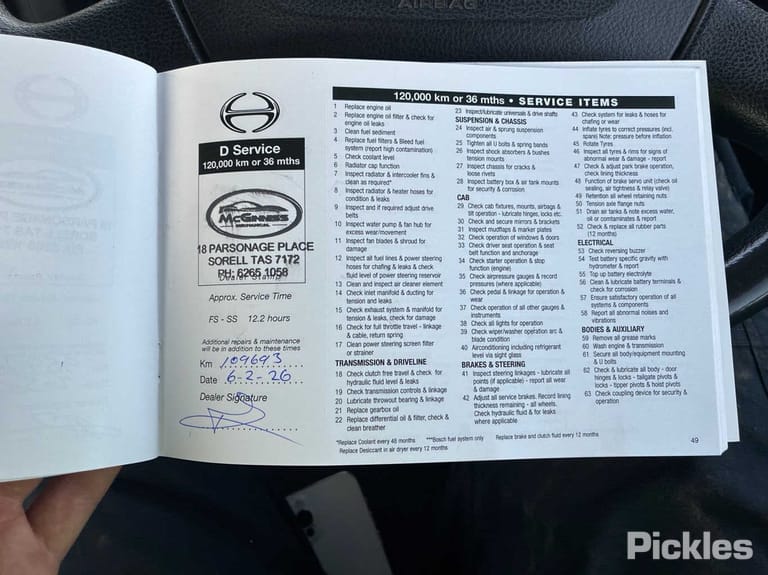 AIRBAG
D Service
120,000 km or 36 mths
McGINNESS
MECHANICAL
18 PARSONAGE PLACE
SORELL TAS 7172
PH: 6265 1058
Dealer Stamp
Approx. Service Time
FS - SS 12.2 hours
Additional repairs & maintenance
will be in addition to these times
Km 109693
Date 6-2-26
Dealer Signature
120,000 km or 36 mths • SERVICE ITEMS
1 Replace engine oil
2 Replace engine oil filter & check for
engine oil leaks
3 Clean fuel sediment
4 Replace fuel filters & Bleed fuel
system (report high contamination)
5 Check coolant level
6 Radiator cap function
7 Inspect radiator & intercooler fins &
clean as required*
8 Inspect radiator & heater hoses for
condition & leaks
9 Inspect and if required adjust drive
belts
10 Inspect water pump & fan hub for
excess wear/movement
11 Inspect fan blades & shroud for
damage
12 Inspect all fuel lines & power steering
hoses for chafing & leaks & check
fluid level of power steering reservoir
13 Clean and inspect air cleaner element
14 Check inlet manifold & ducting for
tension and leaks
15 Check exhaust system & manifold for
tension & leaks, check for damage
16 Check for full throttle travel - linkage
& cable, return spring
17 Clean power steering screen filter
or strainer
TRANSMISSION & DRIVELINE
18 Check clutch free travel & check for
hydraulic fluid level & leaks
19 Check transmission controls & linkage
20 Lubricate throwout bearing & linkage
21 Replace gearbox oil
22 Replace differential oil & filter, check &
clean breather
23 Inspect/lubricate universals & drive shafts
SUSPENSION & CHASSIS
24 Inspect air & sprung suspension
components
25 Tighten all U bolts & spring bands
26 Inspect shock absorbers & bushes
tension mounts
27 Inspect chassis for cracks &
loose rivets
28 Inspect battery box & air tank mounts
for security & corrosion
CAB
29 Check cab fixtures, mounts, airbags &
tilt operation - lubricate hinges, locks etc.
30 Check and secure mirrors & brackets
31 Inspect mudflaps & marker plates
32 Check operation of windows & doors
33 Check driver seat operation & seat
belt function and anchorage
34 Check starter operation & stop
function (engine)
35 Check airpressure gauges & record
pressures (where applicable)
36 Check pedal & linkage for operation &
wear
37 Check operation of all other gauges &
instruments
38 Check all lights for operation
39 Check wiper/washer operation arc &
blade condition
40 Airconditioning including refrigerant
level via sight glass
BRAKES & STEERING
41 Inspect steering linkages - lubricate all
points (if applicable) - report all wear
& damage
42 Adjust all service brakes. Record lining
thickness remaining - all wheels.
Check hydraulic fluid & for leaks
where applicable.
43 Check system for leaks & hoses for
chafing or wear
44 Inflate tyres to correct pressures (incl.
spare) Note: pressure before inflation
45 Rotate Tyres
46 Inspect all tyres & rims for signs of
abnormal wear & damage - report
47 Check & adjust park brake operation,
check lining thickness
48 Function of brake servo unit (check oil
sealing, air tightness & relay valve)
49 Retention all wheel retaining nuts
50 Tension axle flange nuts
51 Drain air tanks & note excess water,
oil or contaminates & report
52 Check & replace all rubber parts
(12 months)
ELECTRICAL
53 Check reversing buzzer
54 Test battery specific gravity with
hydrometer & report
55 Top up battery electrolyte
56 Clean & lubricate battery terminals &
check for corrosion
57 Ensure satisfactory operation of all
systems & components
58 Report all abnormal noises and
vibrations
BODIES & AUXILIARY
59 Remove all grease marks
60 Wash engine & transmission
61 Secure all body/equipment mounting
& U bolts
62 Check & lubricate all body - door
hinges & locks - tailgate pivots &
locks - tipper pivots & hoist pivots
63 Check coupling device for security &
operation
*Replace Coolant every 48 months ***Bosch fuel system only Replace brake and clutch fluid every 12 months
Replace Desiccant in air dryer every 12 months
49
Pickles